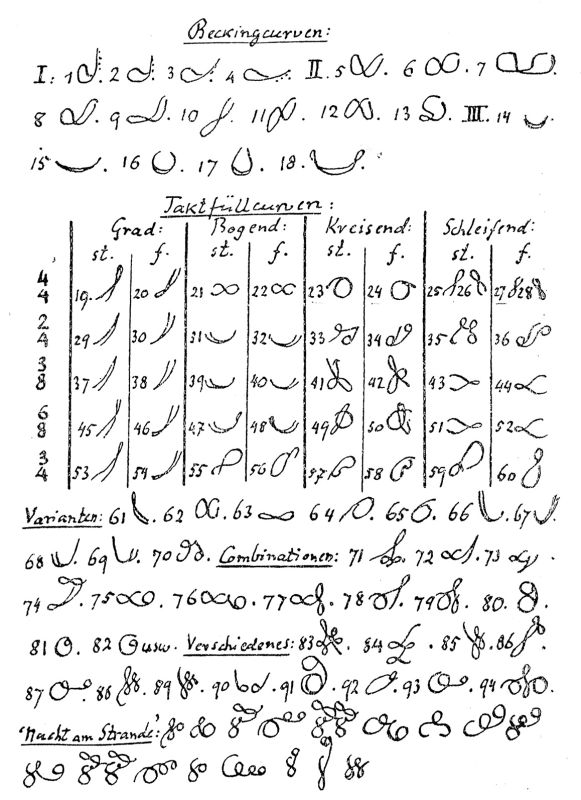 Beckingcurven:
I: 1 2 3 4 II. 5 6 7
8 9 10 11 12 13 III. 14
15 16 17 18.
Taktfüllcurven:
Grad: Bogend: Kreisend: Schleifend:
st. f. st. f. st. f. st. f.
4/4 19. 20 21 22 23 24 25 26 27 28
2/4 29 30 31 32 33 34 35 36
3/8 37 38 39 40 41 42 43 44
6/8 45 46 47 48 49 50 51 52
3/4 53 54 55 56 57 58 59 60
Varianten: 61 62 63 64 65 66 67
68 69 70 Combinationen: 71 72 73
74 75 76 77 78 79 80.
81 82 usw. Verschiedenes: 83 84 85 86
87 88 89 90 91 92 93 94
'Nacht am Strande':